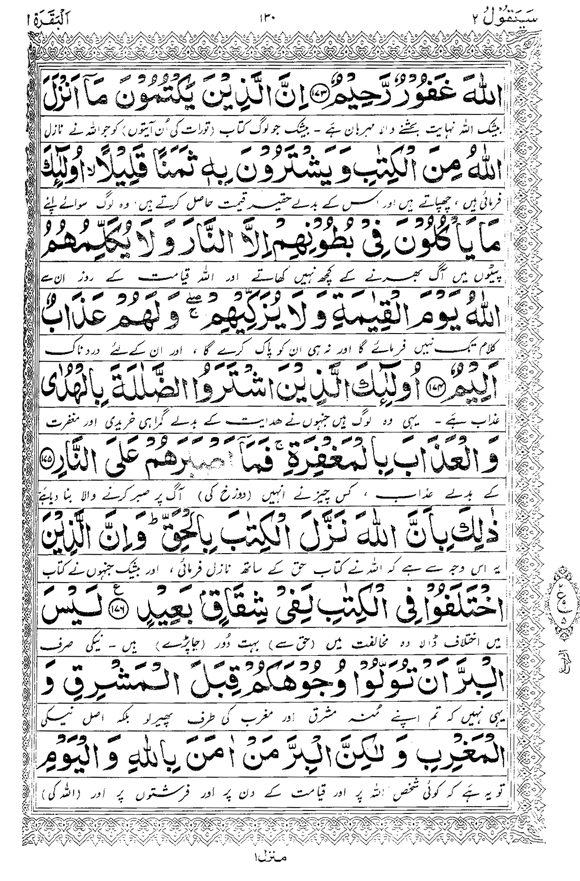 سَيَقُولُ ٢
١٣٠
اَلْبَقَرَة ٢
اللّٰهَ غَفُوْرٌ رَّحِيْمٌ ﴿١٧٣﴾ اِنَّ الَّذِيْنَ يَكْتُمُوْنَ مَاۤ اَنْزَلَ
بیشک اللہ نہایت بخشنے والا مہربان ہے - بیشک جو لوگ کتاب (تورات کی اُن آیتوں) کو جو اللہ نے نازل
اللّٰهُ مِنَ الْكِتٰبِ وَيَشْتَرُوْنَ بِهٖ ثَمَنًا قَلِيْلًا ۙ اُولٰٓئِكَ
فرمائی ہیں ، چھپاتے ہیں اور اس کے بدلے حقیر قیمت حاصل کرتے ہیں وہ لوگ سوائے اپنے
مَا يَاْكُلُوْنَ فِيْ بُطُوْنِهِمْ اِلَّا النَّارَ وَلَا يُكَلِّمُهُمُ
پیٹوں میں آگ بھرنے کے کچھ نہیں کھاتے اور اللہ قیامت کے روز ان سے
اللّٰهُ يَوْمَ الْقِيٰمَةِ وَلَا يُزَكِّيْهِمْ ۖۚ وَلَهُمْ عَذَابٌ
کلام تک نہیں فرمائے گا اور نہ ہی ان کو پاک کرے گا ، اور ان کے لئے دردناک
اَلِيْمٌ ﴿١٧٤﴾ اُولٰٓئِكَ الَّذِيْنَ اشْتَرَوُا الضَّلٰلَةَ بِالْهُدٰى
عذاب ہے - یہی وہ لوگ ہیں جنہوں نے ھدایت کے بدلے گمراہی خریدی اور مغفرت
وَالْعَذَابَ بِالْمَغْفِرَةِ ۚ فَمَاۤ اَصْبَرَهُمْ عَلَى النَّارِ ﴿١٧٥﴾
کے بدلے عذاب ، کس چیز نے انہیں (دوزخ کی) آگ پر صبر کرنے والا بنا دیا ہے
ذٰلِكَ بِاَنَّ اللّٰهَ نَزَّلَ الْكِتٰبَ بِالْحَقِّ ؕ وَاِنَّ الَّذِيْنَ
یہ اس وجہ سے ہے کہ اللہ نے کتاب حق کے ساتھ نازل فرمائی ، اور بیشک جنہوں نے کتاب
اخْتَلَفُوْا فِي الْكِتٰبِ لَفِيْ شِقَاقٍۭ بَعِيْدٍ ﴿١٧٦﴾ لَيْسَ
میں اختلاف ڈالا وہ مخالفت میں (حق سے) بہت دُور (جا پڑے) ہیں - نیکی صرف
الْبِرَّ اَنْ تُوَلُّوْا وُجُوْهَكُمْ قِبَلَ الْمَشْرِقِ وَ
یہی نہیں کہ تم اپنے مُنہ مشرق اور مغرب کی طرف پھیر لو بلکہ اصل نیکی
الْمَغْرِبِ وَلٰكِنَّ الْبِرَّ مَنْ اٰمَنَ بِاللّٰهِ وَالْيَوْمِ
تو یہ ہے کہ کوئی شخص اللہ پر اور قیامت کے دن پر اور فرشتوں پر اور (اللہ کی)
منزل ١